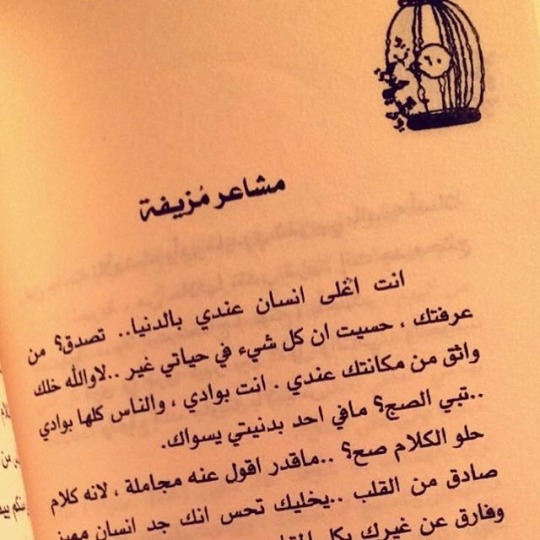 ٦٠
مشاعر مُزيفة
انت اغلى انسان عندي بالدنيا.. تصدق؟ من
عرفتك ، حسيت ان كل شيء في حياتي غير ..لاوالله خلك
واثق من مكانتك عندي . انت بوادي ، والناس كلها بوادي
..تبي الصج؟ مافي احد بدنيتي يسواك.
حلو الكلام صح؟ ..ماقدر اقول عنه مجاملة ، لانه كلام
صادق من القلب ..يخليك تحس انك جد انسان مميز
وفارق عن غيرك بكل